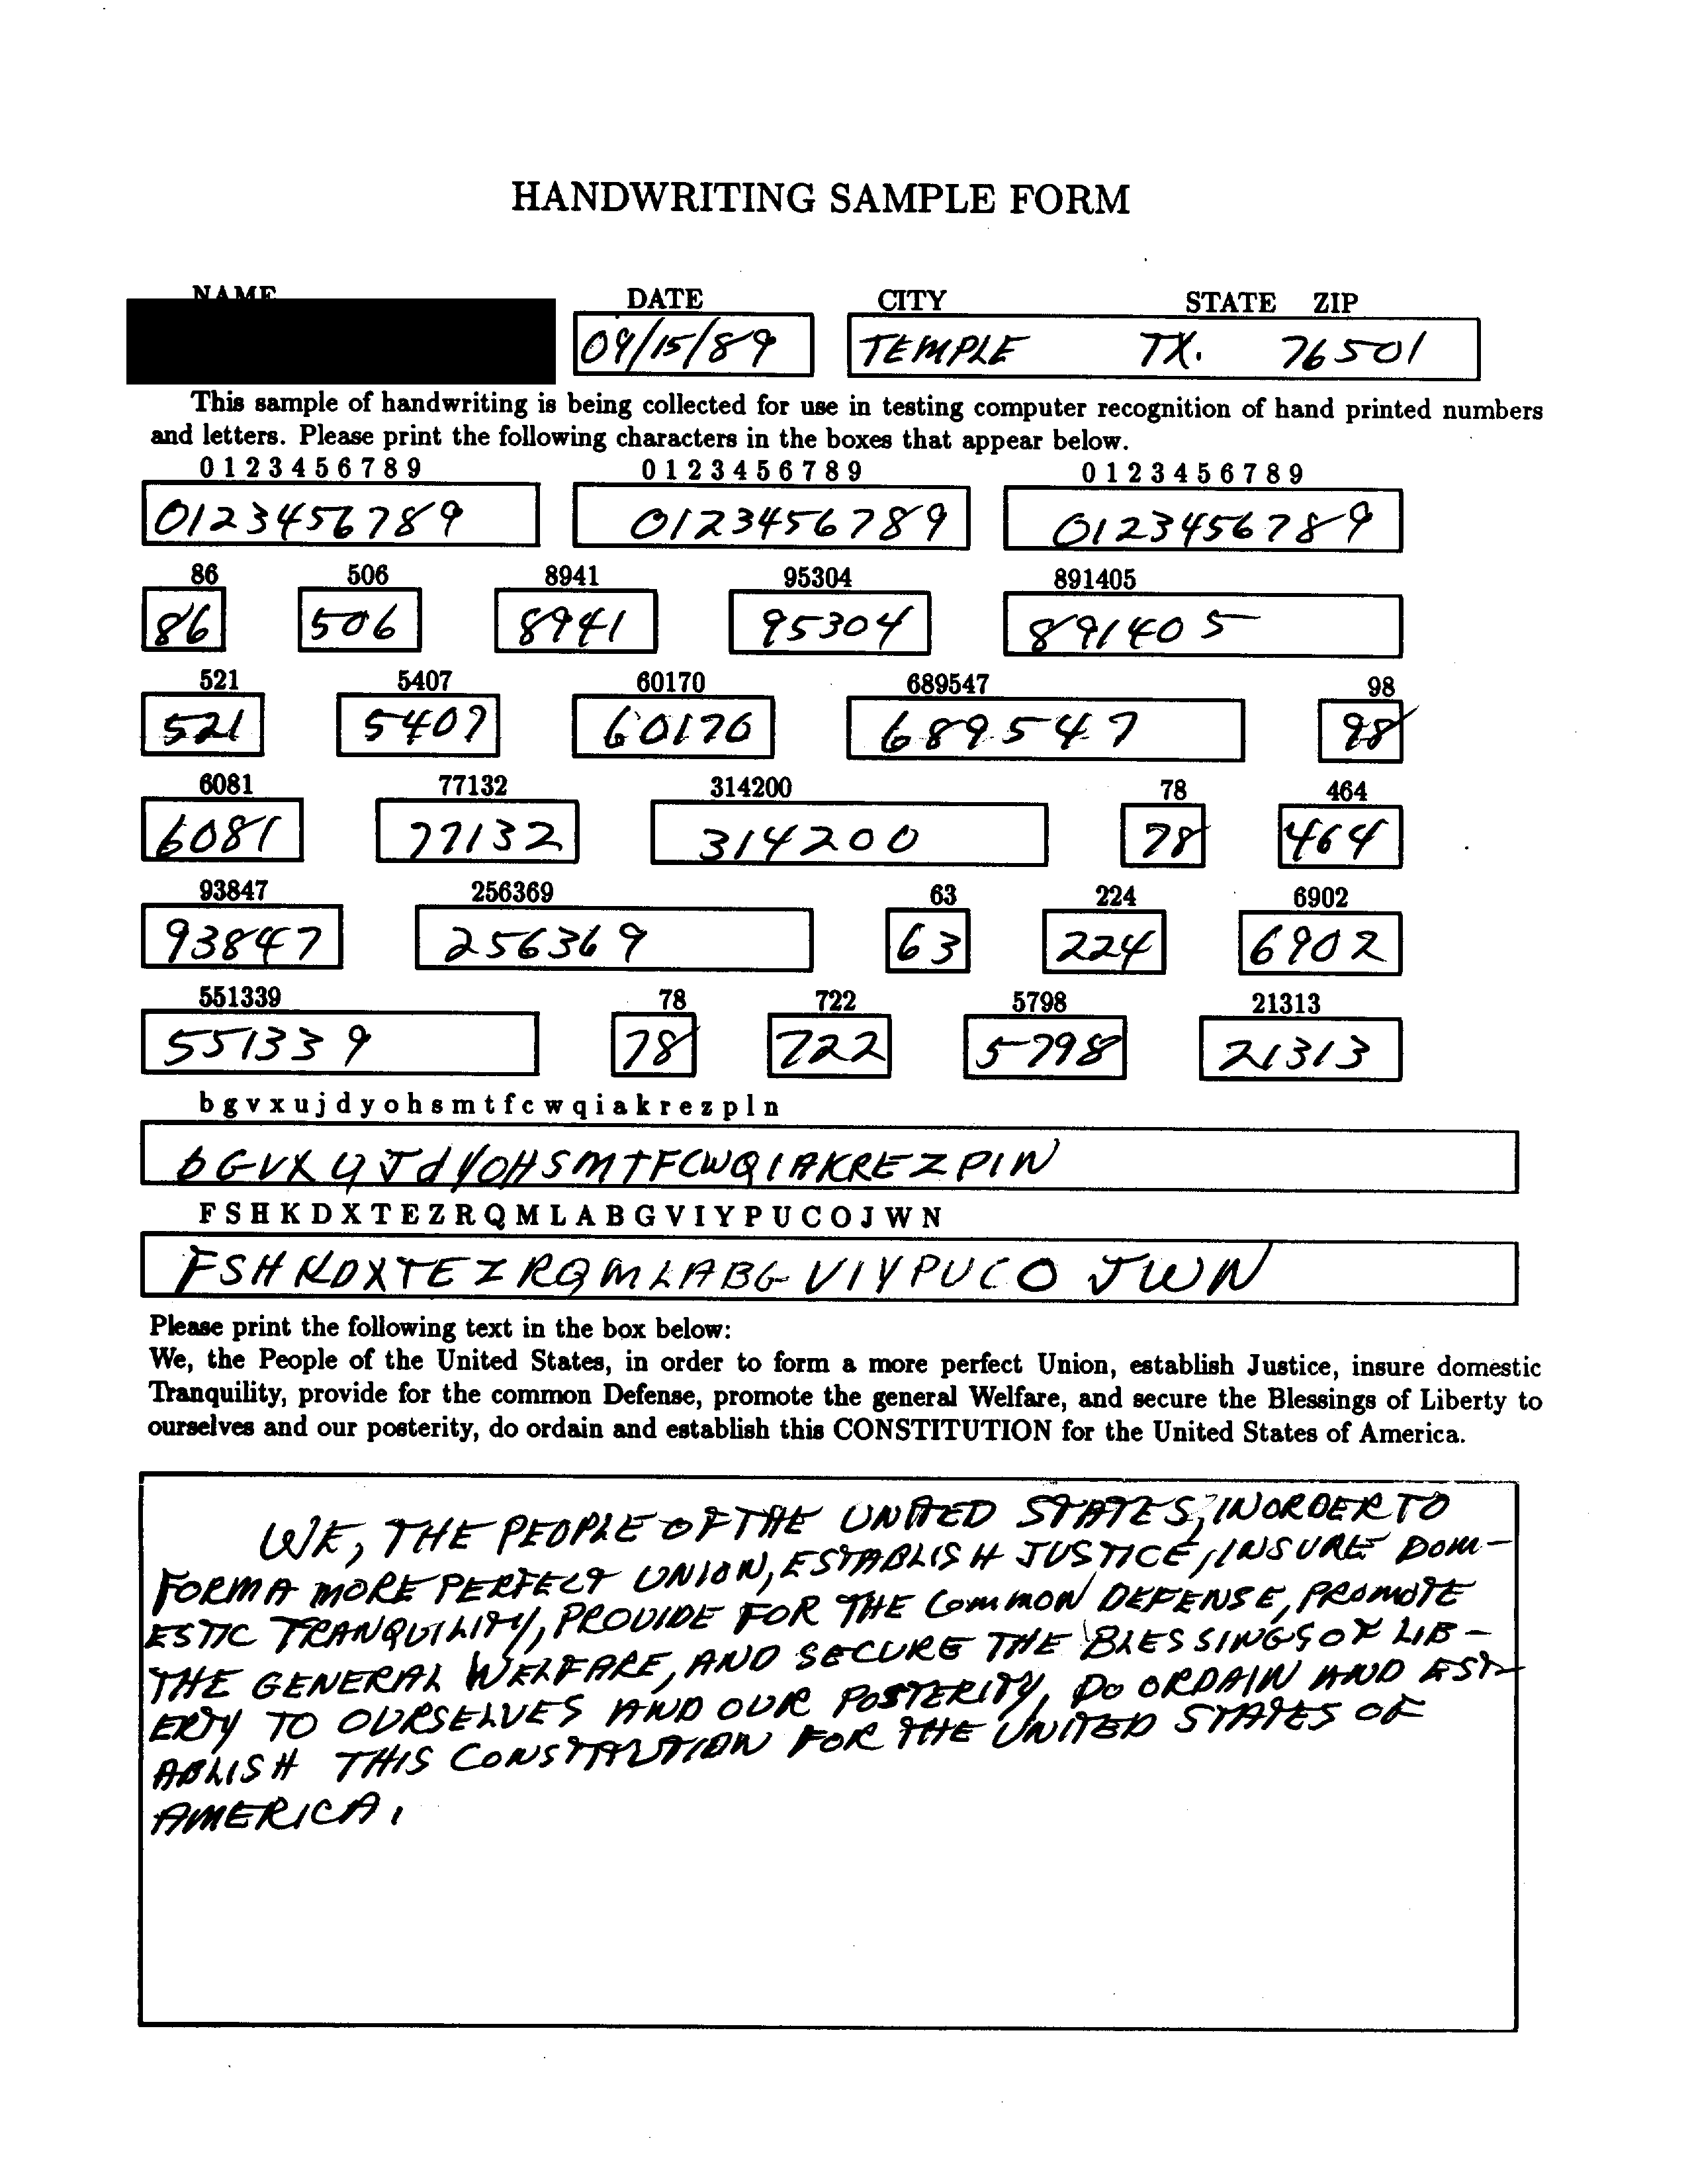 HANDWRITING SAMPLE FORM
NAME DATE CITY STATE ZIP
09/15/89 TEMPLE TX. 76501
This sample of handwriting is being collected for use in testing computer recognition of hand printed numbers
and letters. Please print the following characters in the boxes that appear below.
0 1 2 3 4 5 6 7 8 9 0 1 2 3 4 5 6 7 8 9 0 1 2 3 4 5 6 7 8 9
0123456789 0123456789 0123456789
86 506 8941 95304 891405
86 506 8941 95304 891405
521 5407 60170 689547 98
521 5407 60170 689547 98
6081 77132 314200 78 464
6081 77132 314200 78 464
93847 256369 63 224 6902
93847 256369 63 224 6902
551339 78 722 5798 21313
551339 78 722 5798 21313
b g v x u j d y o h s m t f c w q i a k r e z p l n
bGVXUJdYOHSMTFCWQIAKREZPIN
F S H K D X T E Z R Q M L A B G V I Y P U C O J W N
FSHKDXTEZRQMLABGVIYPUCOJWN
Please print the following text in the box below:
We, the People of the United States, in order to form a more perfect Union, establish Justice, insure domestic
Tranquility, provide for the common Defense, promote the general Welfare, and secure the Blessings of Liberty to
ourselves and our posterity, do ordain and establish this CONSTITUTION for the United States of America.
WE, THE PEOPLE OF THE UNITED STATES, IN ORDER TO
FORM A MORE PERFECT UNION, ESTABLISH JUSTICE, INSURE DOM-
ESTIC TRANQUILITY, PROVIDE FOR THE COMMON DEFENSE, PROMOTE
THE GENERAL WELFARE, AND SECURE THE BLESSINGS OF LIB-
ERTY TO OURSELVES AND OUR POSTERITY, DO ORDAIN AND EST-
ABLISH THIS CONSTITUTION FOR THE UNITED STATES OF
AMERICA.